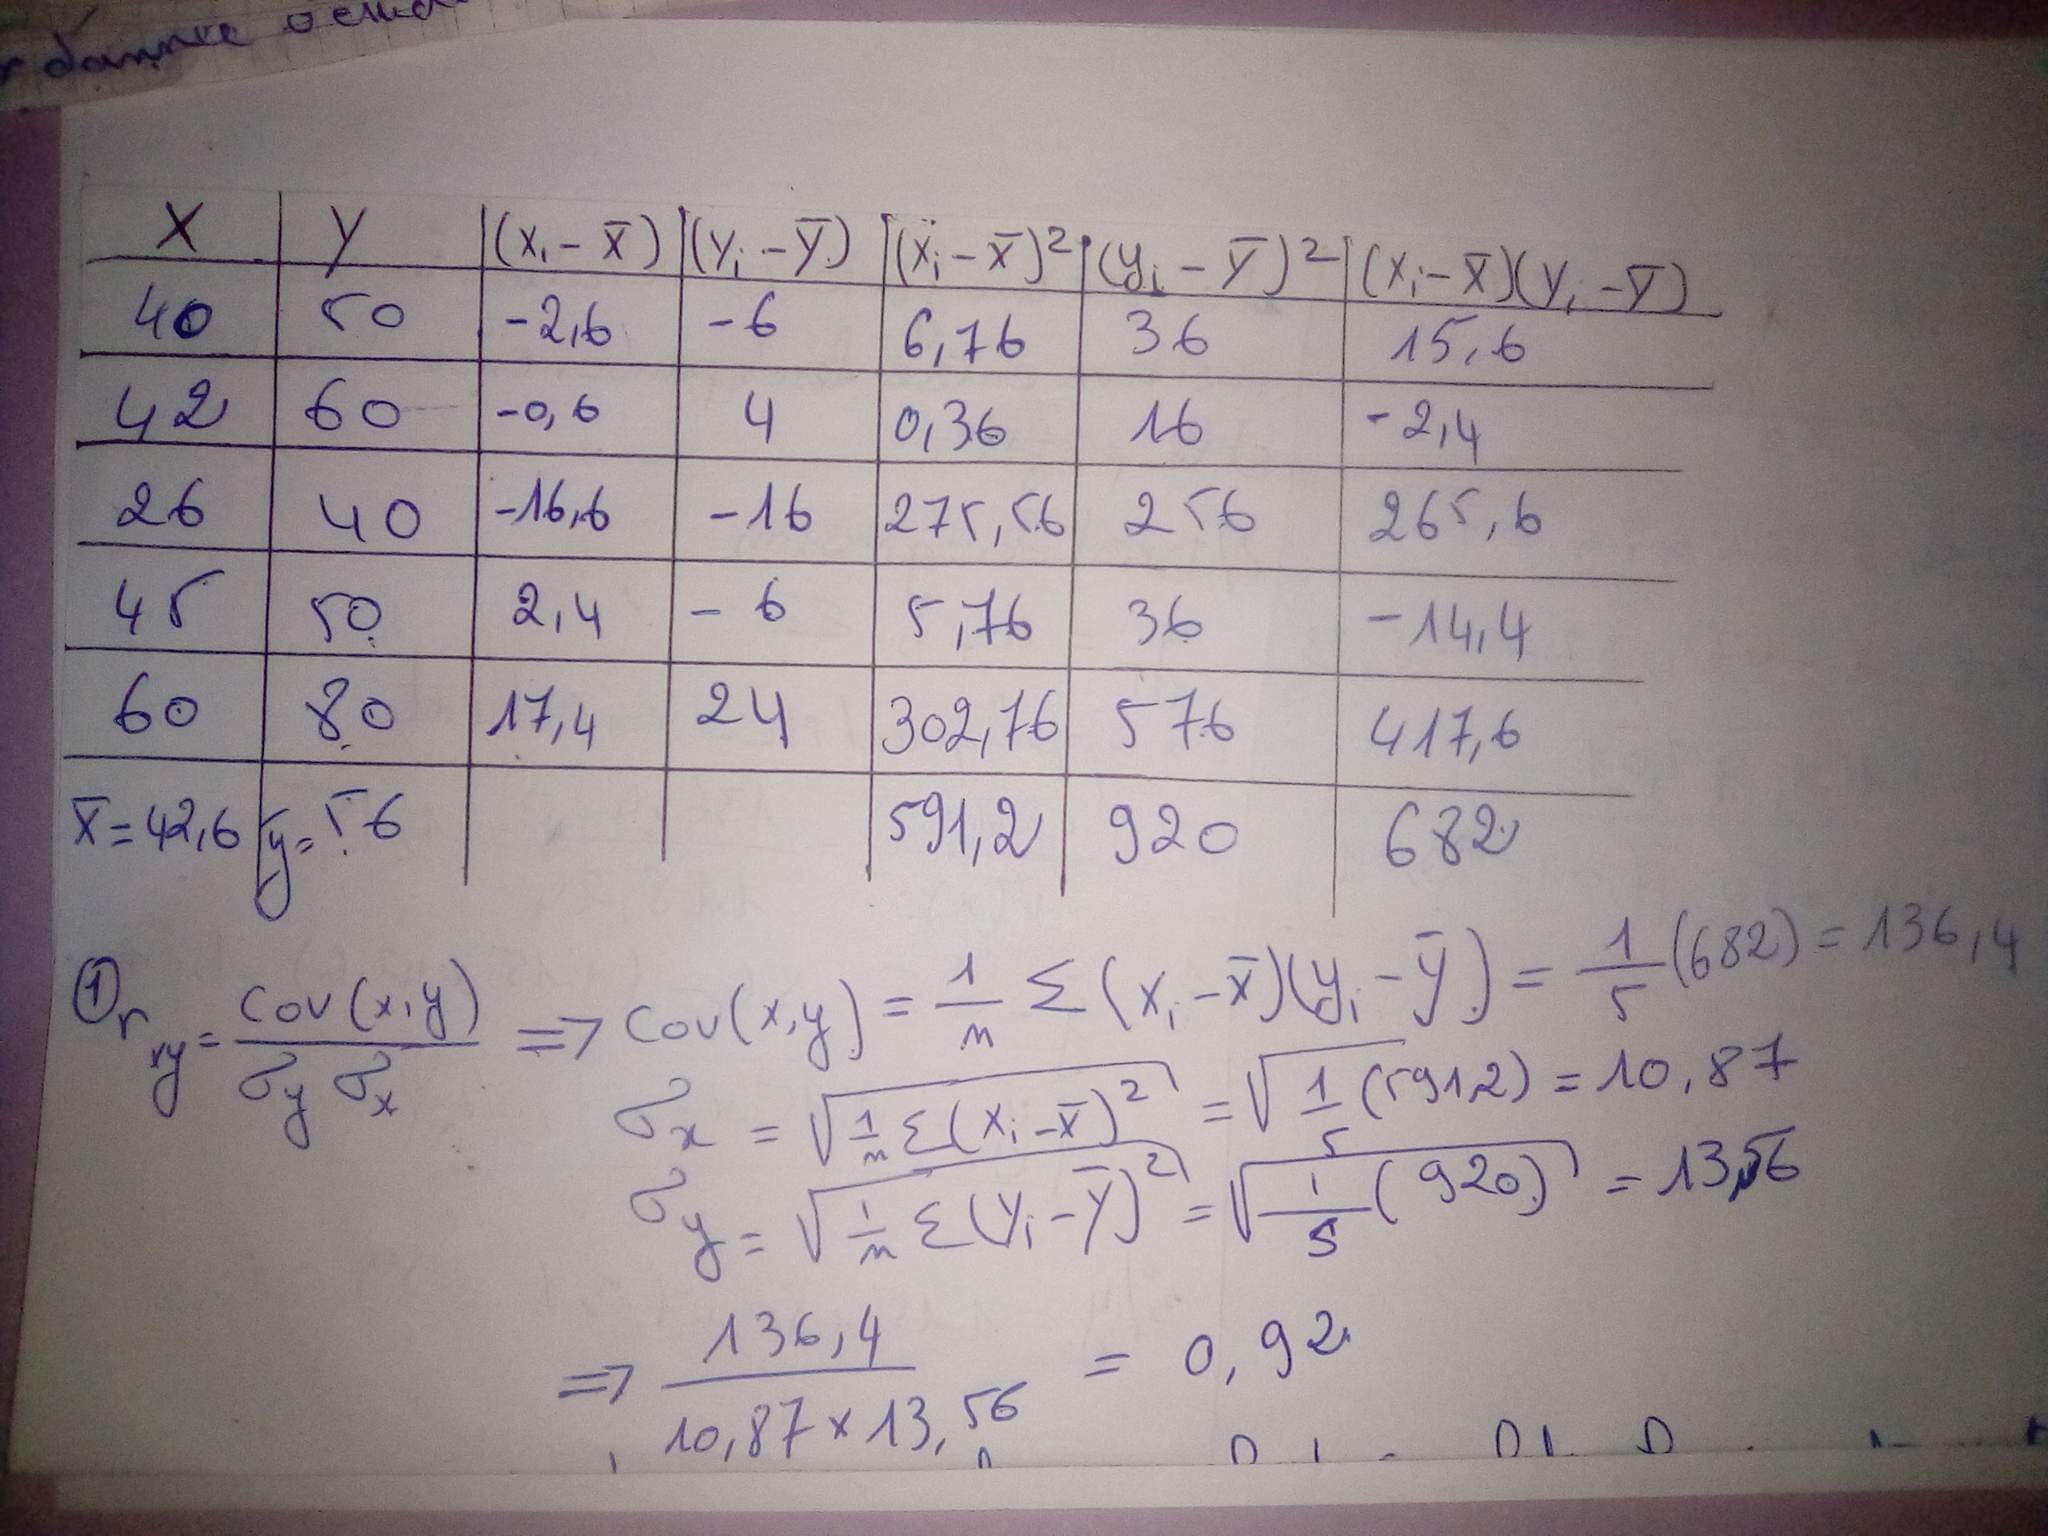 X Y (xᵢ - x̄) (yᵢ - ȳ) (xᵢ - x̄)² (yᵢ - ȳ)² (xᵢ - x̄)(yᵢ - ȳ)
40 50 -2,6 -6 6,76 36 15,6
42 60 -0,6 4 0,36 16 -2,4
26 40 -16,6 -16 275,56 256 265,6
45 50 2,4 -6 5,76 36 -14,4
60 80 17,4 24 302,76 576 417,6
x̄ = 42,6 ȳ = 56 591,2 920 682
① r_xy = cov(x,y) / σ_y σ_x => cov(x,y) = 1/n Σ (xᵢ - x̄)(yᵢ - ȳ) = 1/5 (682) = 136,4
σ_x = √(1/n Σ(xᵢ - x̄)²) = √(1/5 (591,2)) = 10,87
σ_y = √(1/n Σ(yᵢ - ȳ)²) = √(1/5 (920)) = 13,56
=> 136,4 / 10,87 × 13,56 = 0,92